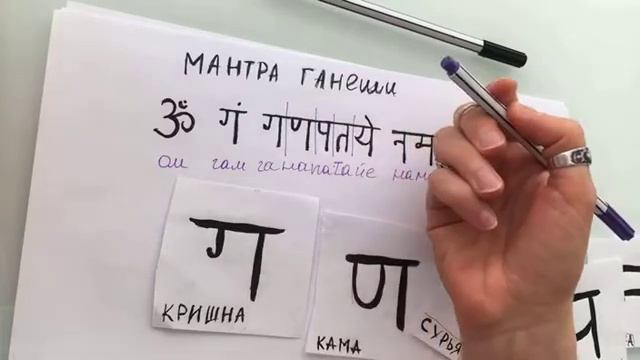 МАНТРА ГАНЕШИ
ॐ गं गणपतये नम
ом гам ганапатайе нам
ग
ण
КРИШНА
КАМА
СУРЬЯ